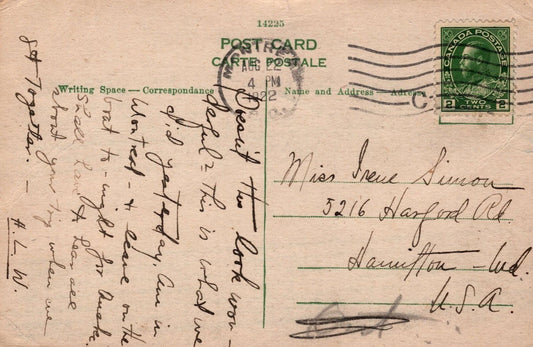 14225
POST CARD
CARTE POSTALE
MONTREAL
AUG 22
4 PM
1922
CANADA POSTAGE
2 2
TWO
CENTS
Writing Space — Correspondence
Name and Address — Adresse
Doesn't this look won-
derful? This is what we
did yesterday. Am in
Montreal & leave on the
boat to-night for Quebec.
Shall have to hear all
about your trip when we
get together. —
H. L. W.
Miss Irene Simon
5216 Harford Rd.
Hamilton - Md.
U.S.A.